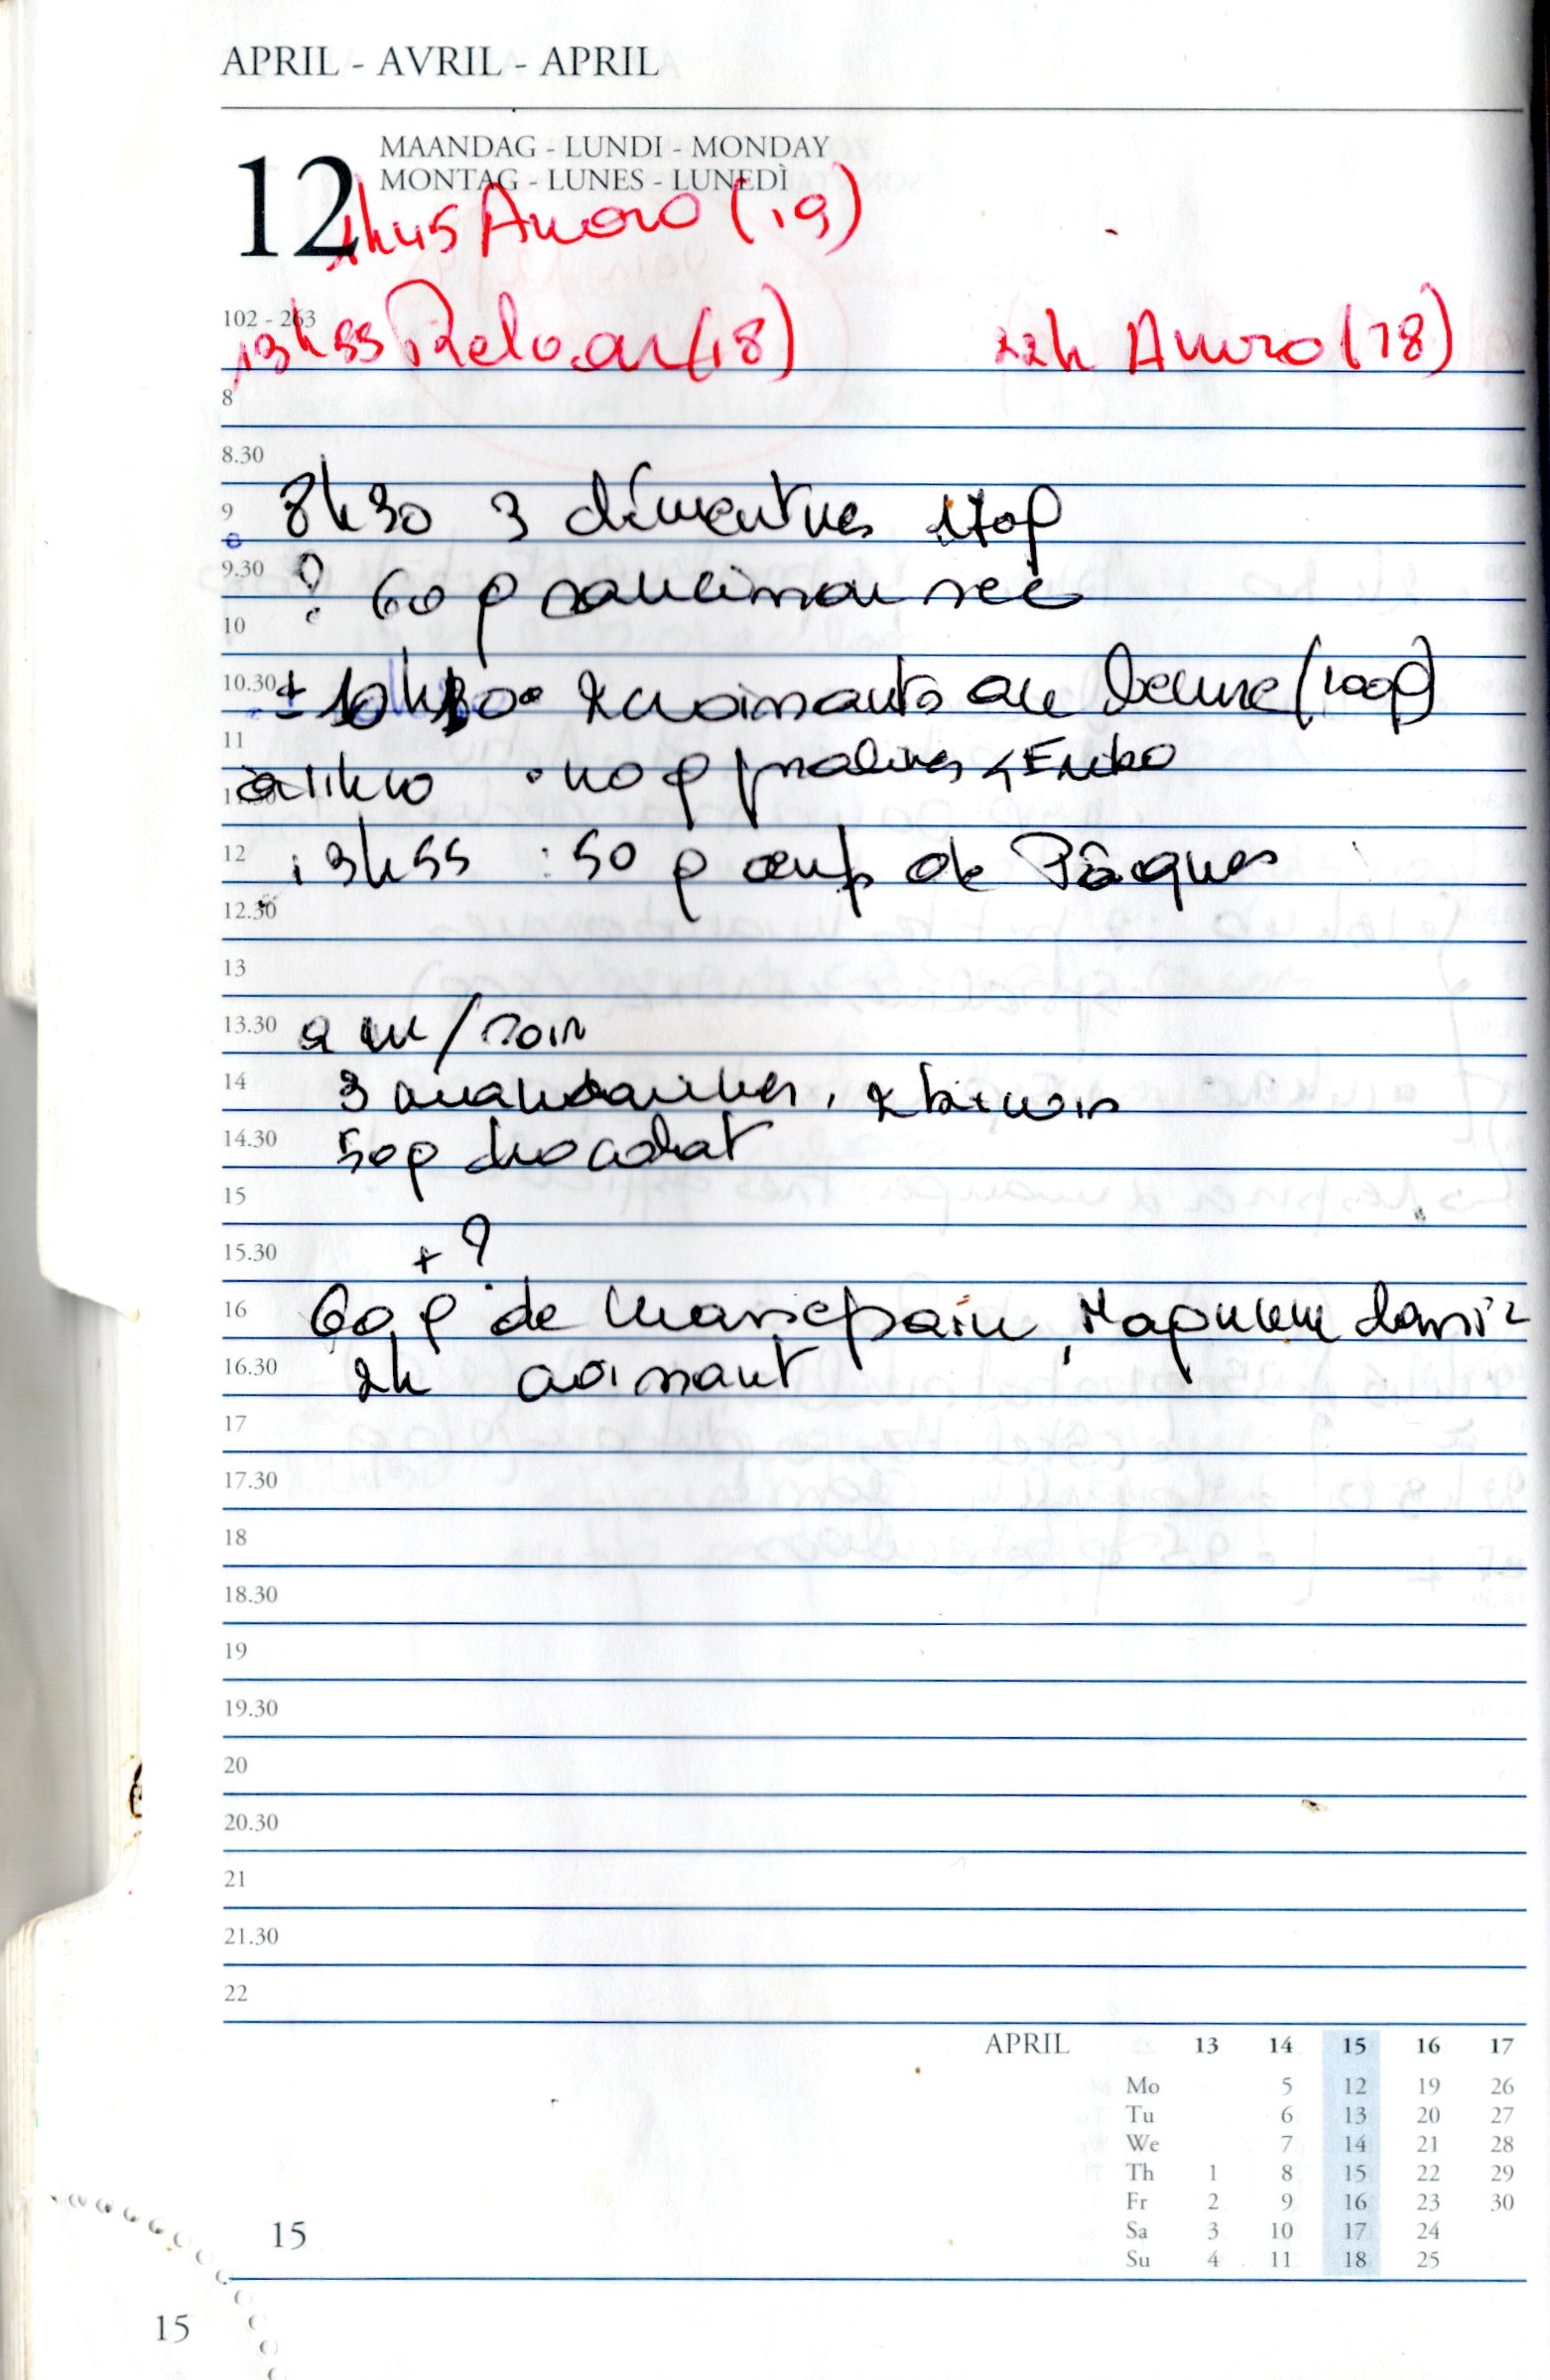 APRIL - AVRIL - APRIL
12
MAANDAG - LUNDI - MONDAY
MONTAG - LUNES - LUNEDÌ
(19)
102 - 263
13h55 (18) 22h (18)
8
8.30
9 8h30 3 170g
9.30 ? 60 g saucisson sec
10
10.30 ± 10h30 • 2 croissants au beurre (100g)
11
11.30 à 11h40 • 40 g pralines
12 13h55 : 50 g œufs de Pâques
12.30
13
13.30 a m / soir
14 3 mandarines, 2
14.30 50g chocolat
15
15.30 + ?
16 60 g de massepain,
16.30 2h croissant
17
17.30
18
18.30
19
19.30
20
20.30
21
21.30
22
APRIL 13 14 15 16 17
Mo 5 12 19 26
Tu 6 13 20 27
We 7 14 21 28
Th 1 8 15 22 29
Fr 2 9 16 23 30
Sa 3 10 17 24
Su 4 11 18 25
15
15